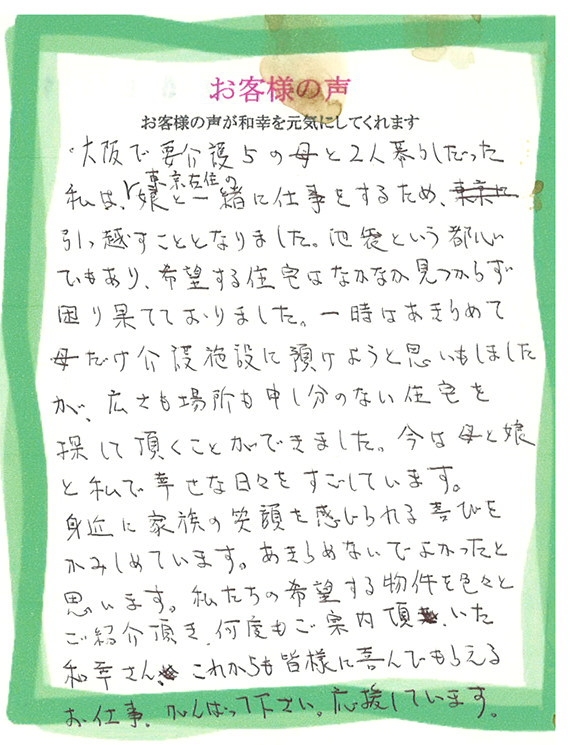 お客様の声
お客様の声が和幸を元気にしてくれます
大阪で要介護5の母と2人暮らしだった
私は、東京在住の娘と一緒に仕事をするため、東京に
引っ越すこととなりました。池袋という都心
でもあり、希望する住宅はなかなか見つからず
困り果てておりました。一時はあきらめて
母だけ介護施設に預けようと思いもしました
が、広さも場所も申し分のない住宅を
探して頂くことができました。今は母と娘
と私で幸せな日々をすごしています。
身近に家族の笑顔を感じられる喜びを
かみしめています。あきらめないでよかったと
思います。私たちの希望する物件を色々と
ご紹介頂き、何度もご案内頂いた
和幸さん、これからも皆様に喜んでもらえる
お仕事、がんばって下さい。応援しています。